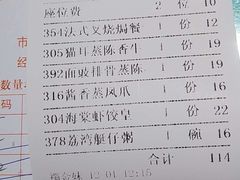 座位费 2 位 10
354法式叉烧焗餐 1 份 12
305猫耳蒸陈香牛 1 份 19
392面豉排骨蒸陈 1 份 19
316酱香蒸凤爪 1 份 16
304海棠虾饺皇 1 份 22
378荔湾艇仔粥 1 碗 16
合计 114
12-01 12:15
市
经
数量:
码